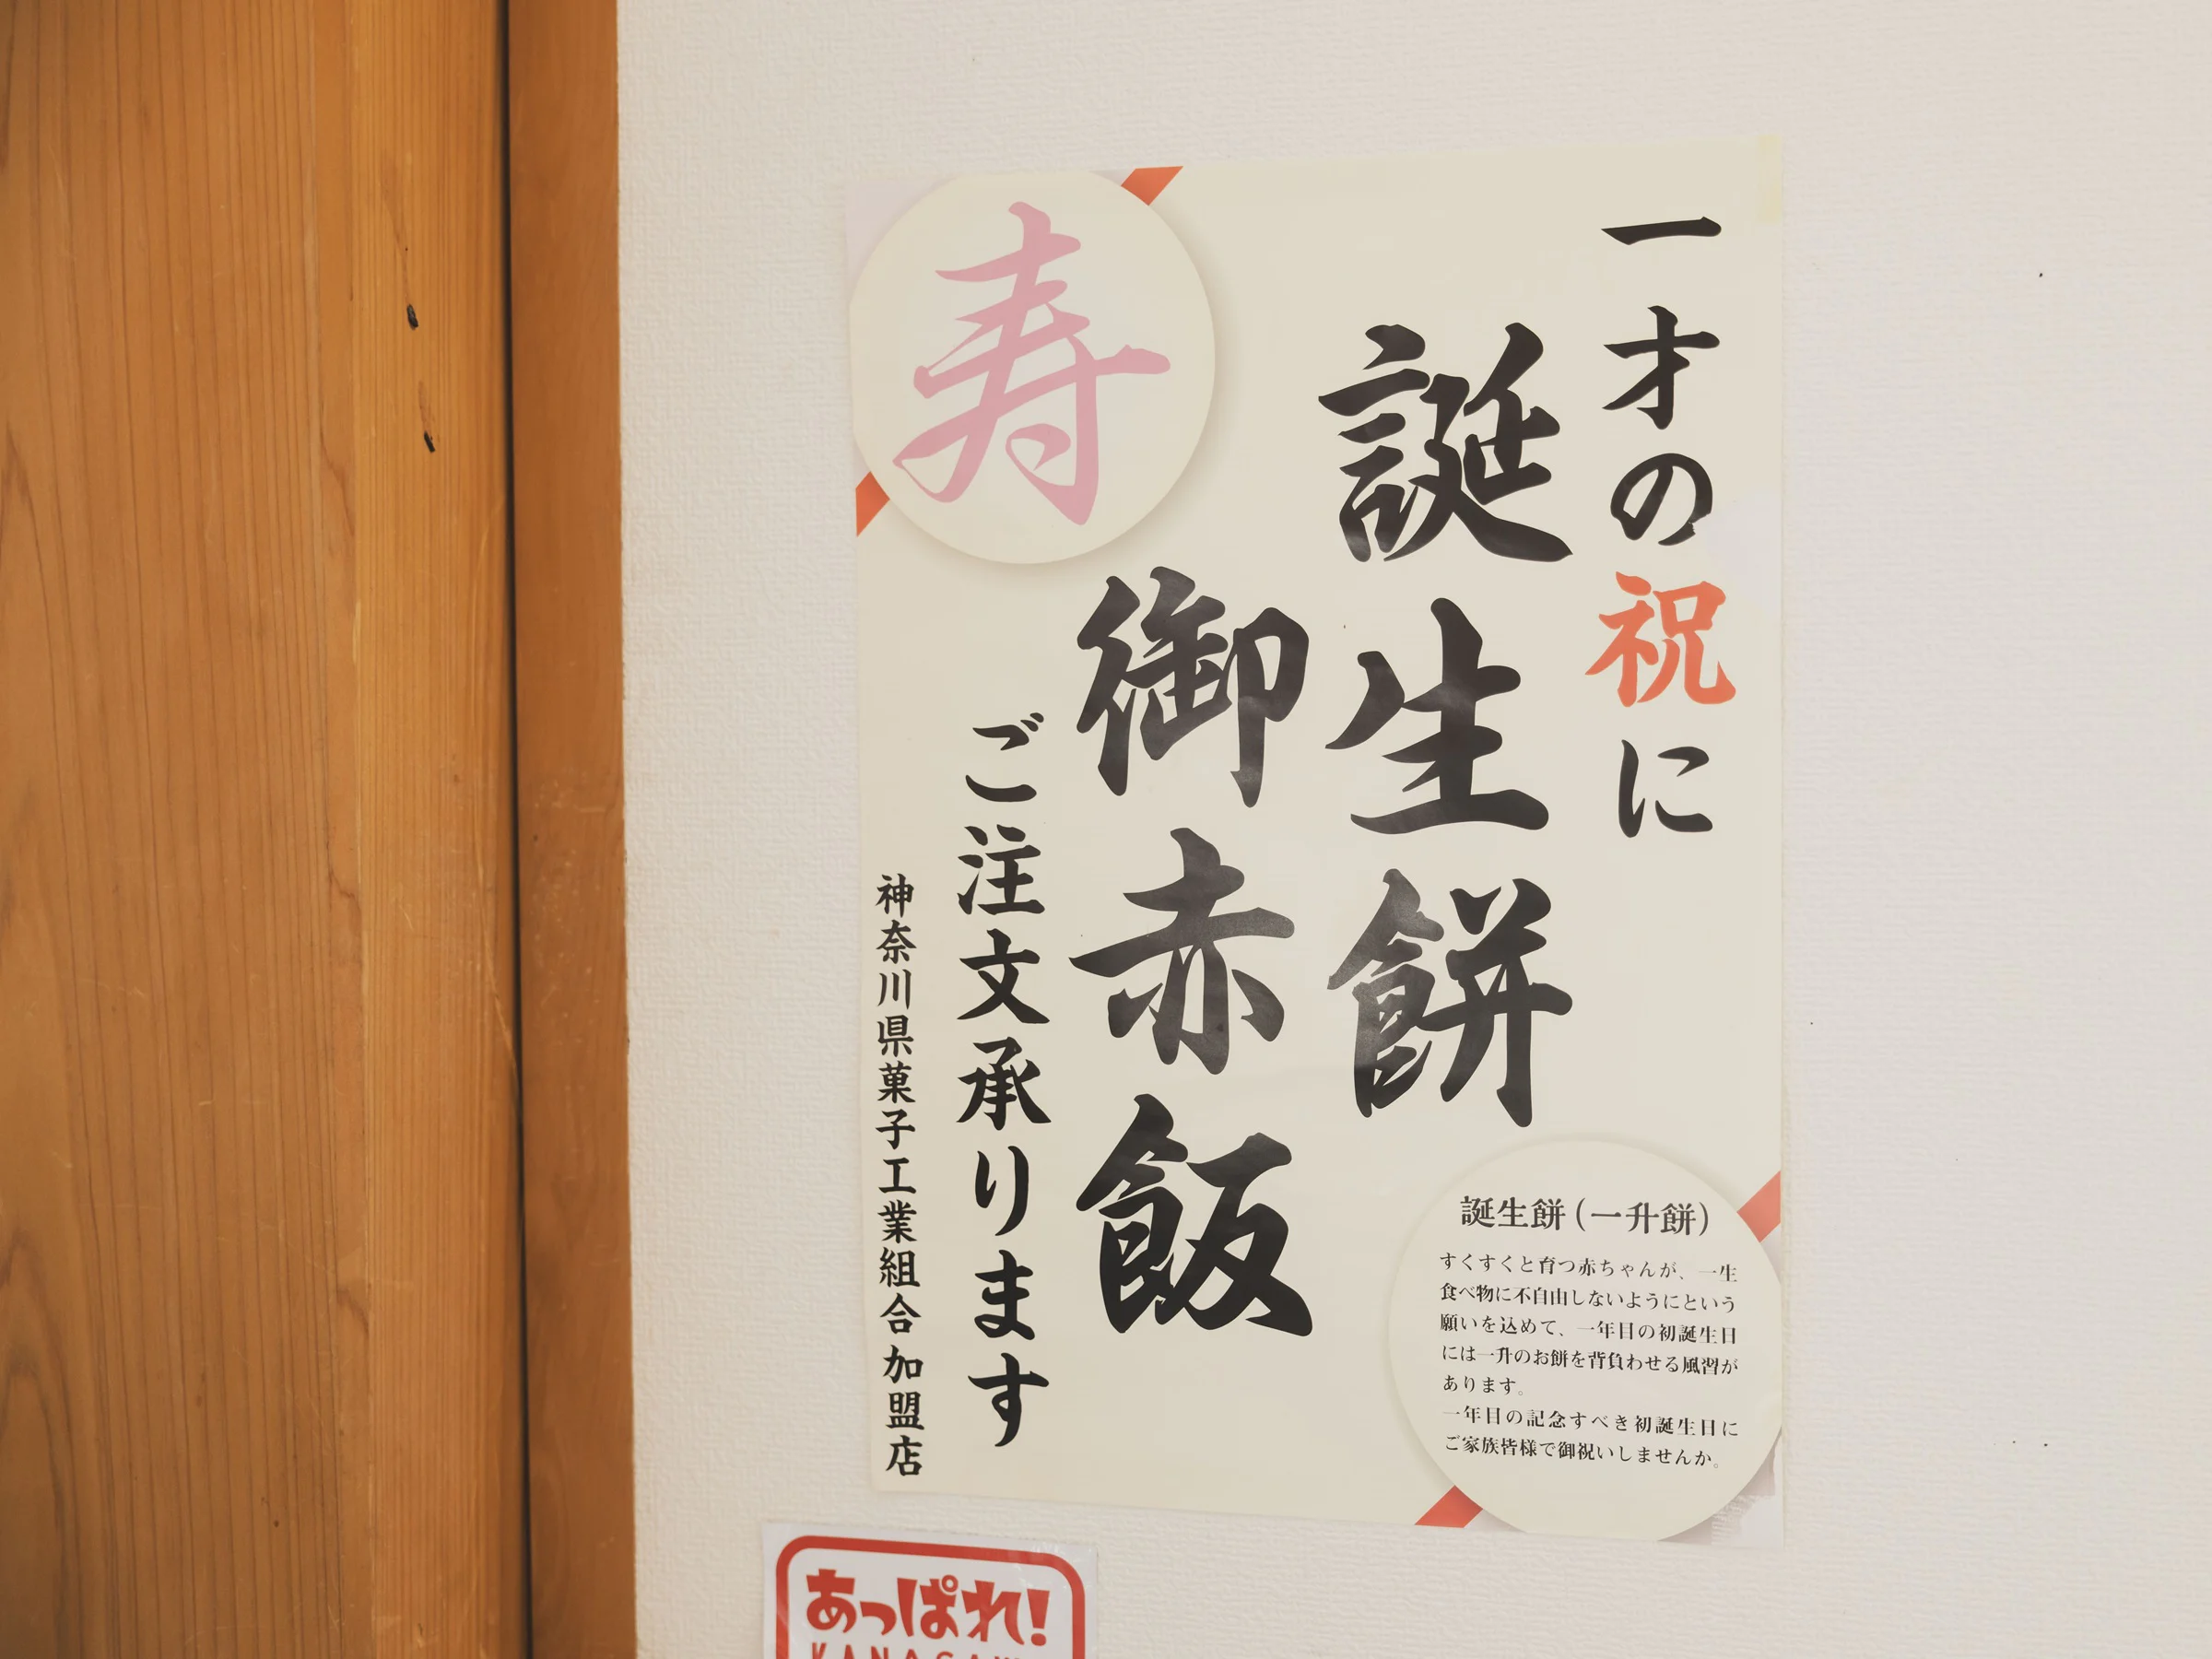 一才の祝に
誕生餅
御赤飯
ご注文承ります
神奈川県菓子工業組合加盟店
寿
誕生餅(一升餅)
すくすくと育つ赤ちゃんが、一生
食べ物に不自由しないようにという
願いを込めて、一年目の初誕生日
には一升のお餅を背負わせる風習が
あります。
一年目の記念すべき初誕生日に
ご家族皆様で御祝いしませんか。
あっぱれ!